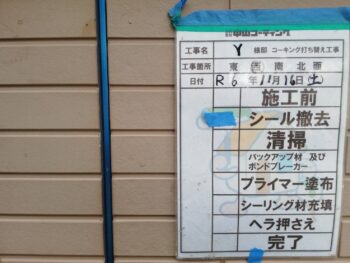 株式会社 中山コーティング
工事名 Y 様邸 コーキング打ち替え工事
工事箇所 東 西 南 北 面
日付 R 6 年 11月 16日(土)
施工前
シール撤去
清掃
バックアップ材 及び
ボンドブレーカー
プライマー塗布
シーリング材充填
ヘラ押さえ
完了